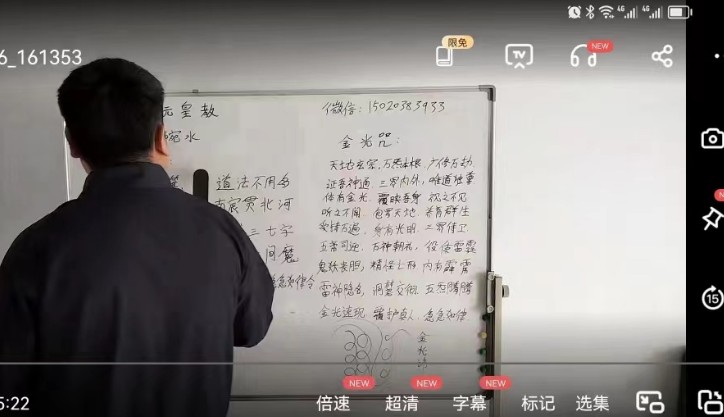 6_161353
限免
NEW
元皇教
碗水
微信：15020383933
金光咒：
道法不用多
南宸贯北河
三七字
魔
急急如律令
天地玄宗，万炁本根，广修万劫
证吾神通，三界内外，唯道独尊
体有金光，覆映吾身，视之不见
听之不闻，包罗天地，养育群生
受持万遍，身有光明，三界侍卫
五帝司迎，万神朝礼，役使雷霆
鬼妖丧胆，精怪亡形，内有霹雳
雷神隐名，洞慧交彻，五炁腾腾
金光速现，覆护真人，急急如律
金光
5:22
倍速
NEW
超清
NEW
字幕
NEW
标记
选集
15